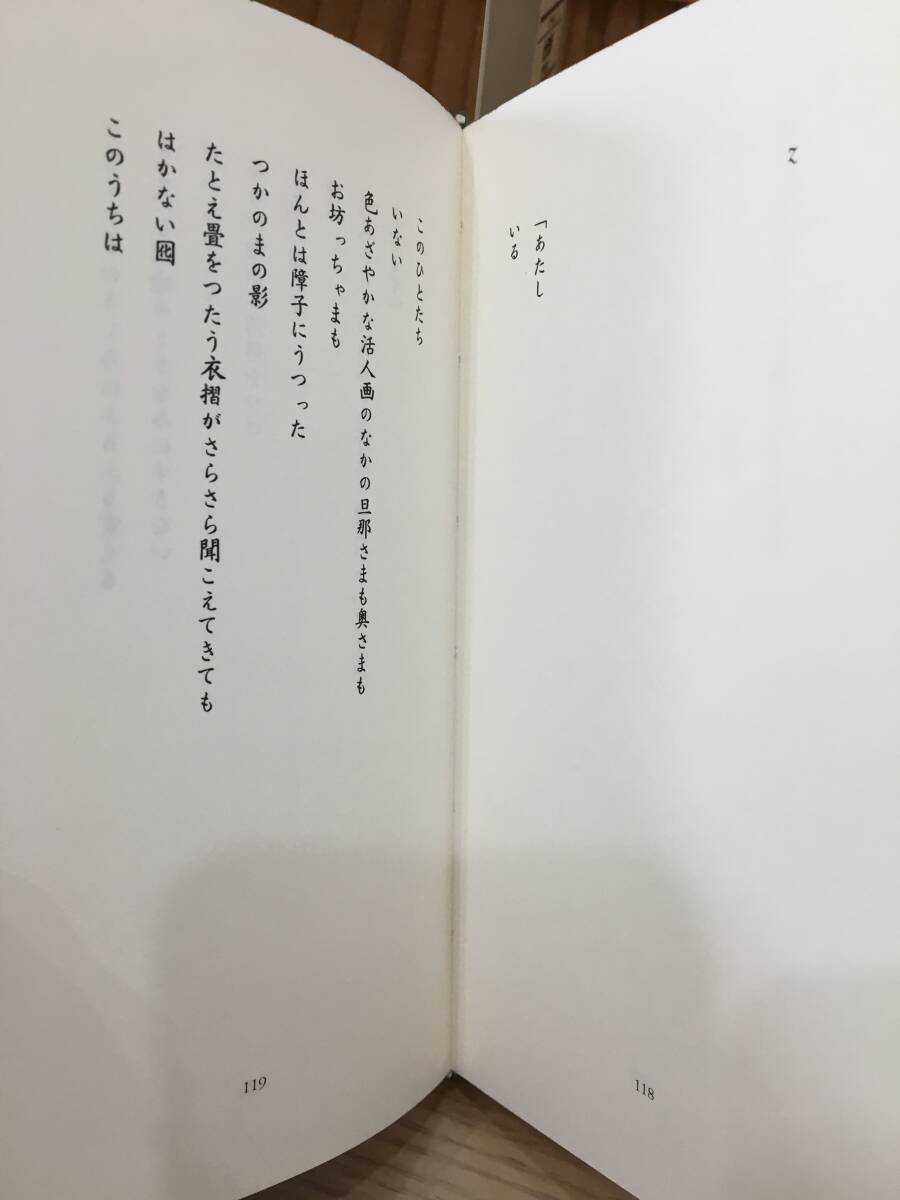 z
「あたし
いる
118
このひとたち
いない
色あざやかな活人画のなかの旦那さまも奥さまも
お坊っちゃまも
ほんとは障子にうつった
つかのまの影
たとえ畳をつたう衣摺がさらさら聞こえてきても
はかない囮
このうちは
119